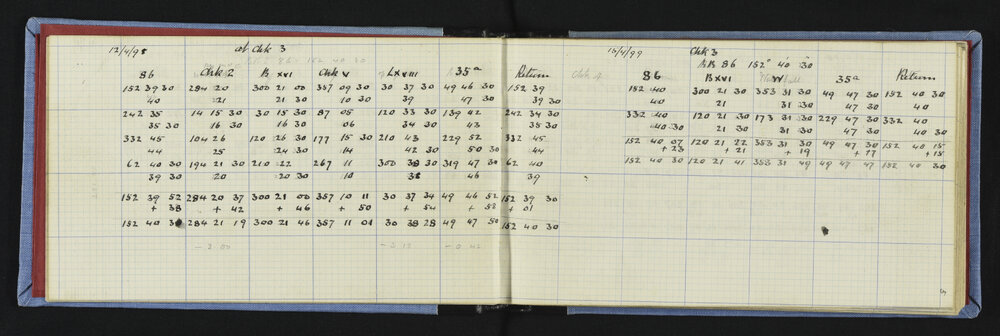 12/4/98 at Chk 3
86 Chk 2 B XVI Chk V LXVIII 35ª Return
152 39 30 284 20 300 21 00 357 09 30 30 37 30 49 46 30 152 39
40 21 21 30 10 30 39 47 30 39 30
242 35 14 15 30 30 15 30 87 05 120 33 30 139 42 242 34 30
35 30 16 30 16 30 06 34 30 43 35 30
332 45 104 26 120 26 30 177 15 30 210 43 229 52 332 45
44 25 24 30 14 42 30 50 30 44
62 40 30 194 21 30 210 22 267 11 300 38 30 319 47 30 62 40
39 30 20 20 30 10 38 46 39
152 39 52 284 20 37 300 21 00 357 10 11 30 37 34 49 46 52 152 39 30
+ 38 + 42 + 46 + 50 + 54 + 58 + 01
152 40 30 284 21 19 300 21 46 357 11 01 30 38 28 49 47 50 152 40 30
15/4/99 Chk 3
BB 86 152° 40 30
Chk 4 86 B XVI V 35ª Return
152 40 300 21 30 353 31 30 49 47 30 152 40 30
40 21 31 30 47 30 40
332 40 120 21 30 173 31 30 229 47 30 332 40
40 30 21 30 31 30 47 30 40 30
152 40 07 120 21 22 353 31 30 49 47 30 152 40 15
+ 23 + 21 + 19 + 17 + 15
152 40 30 120 21 41 353 31 49 49 47 47 152 40 30